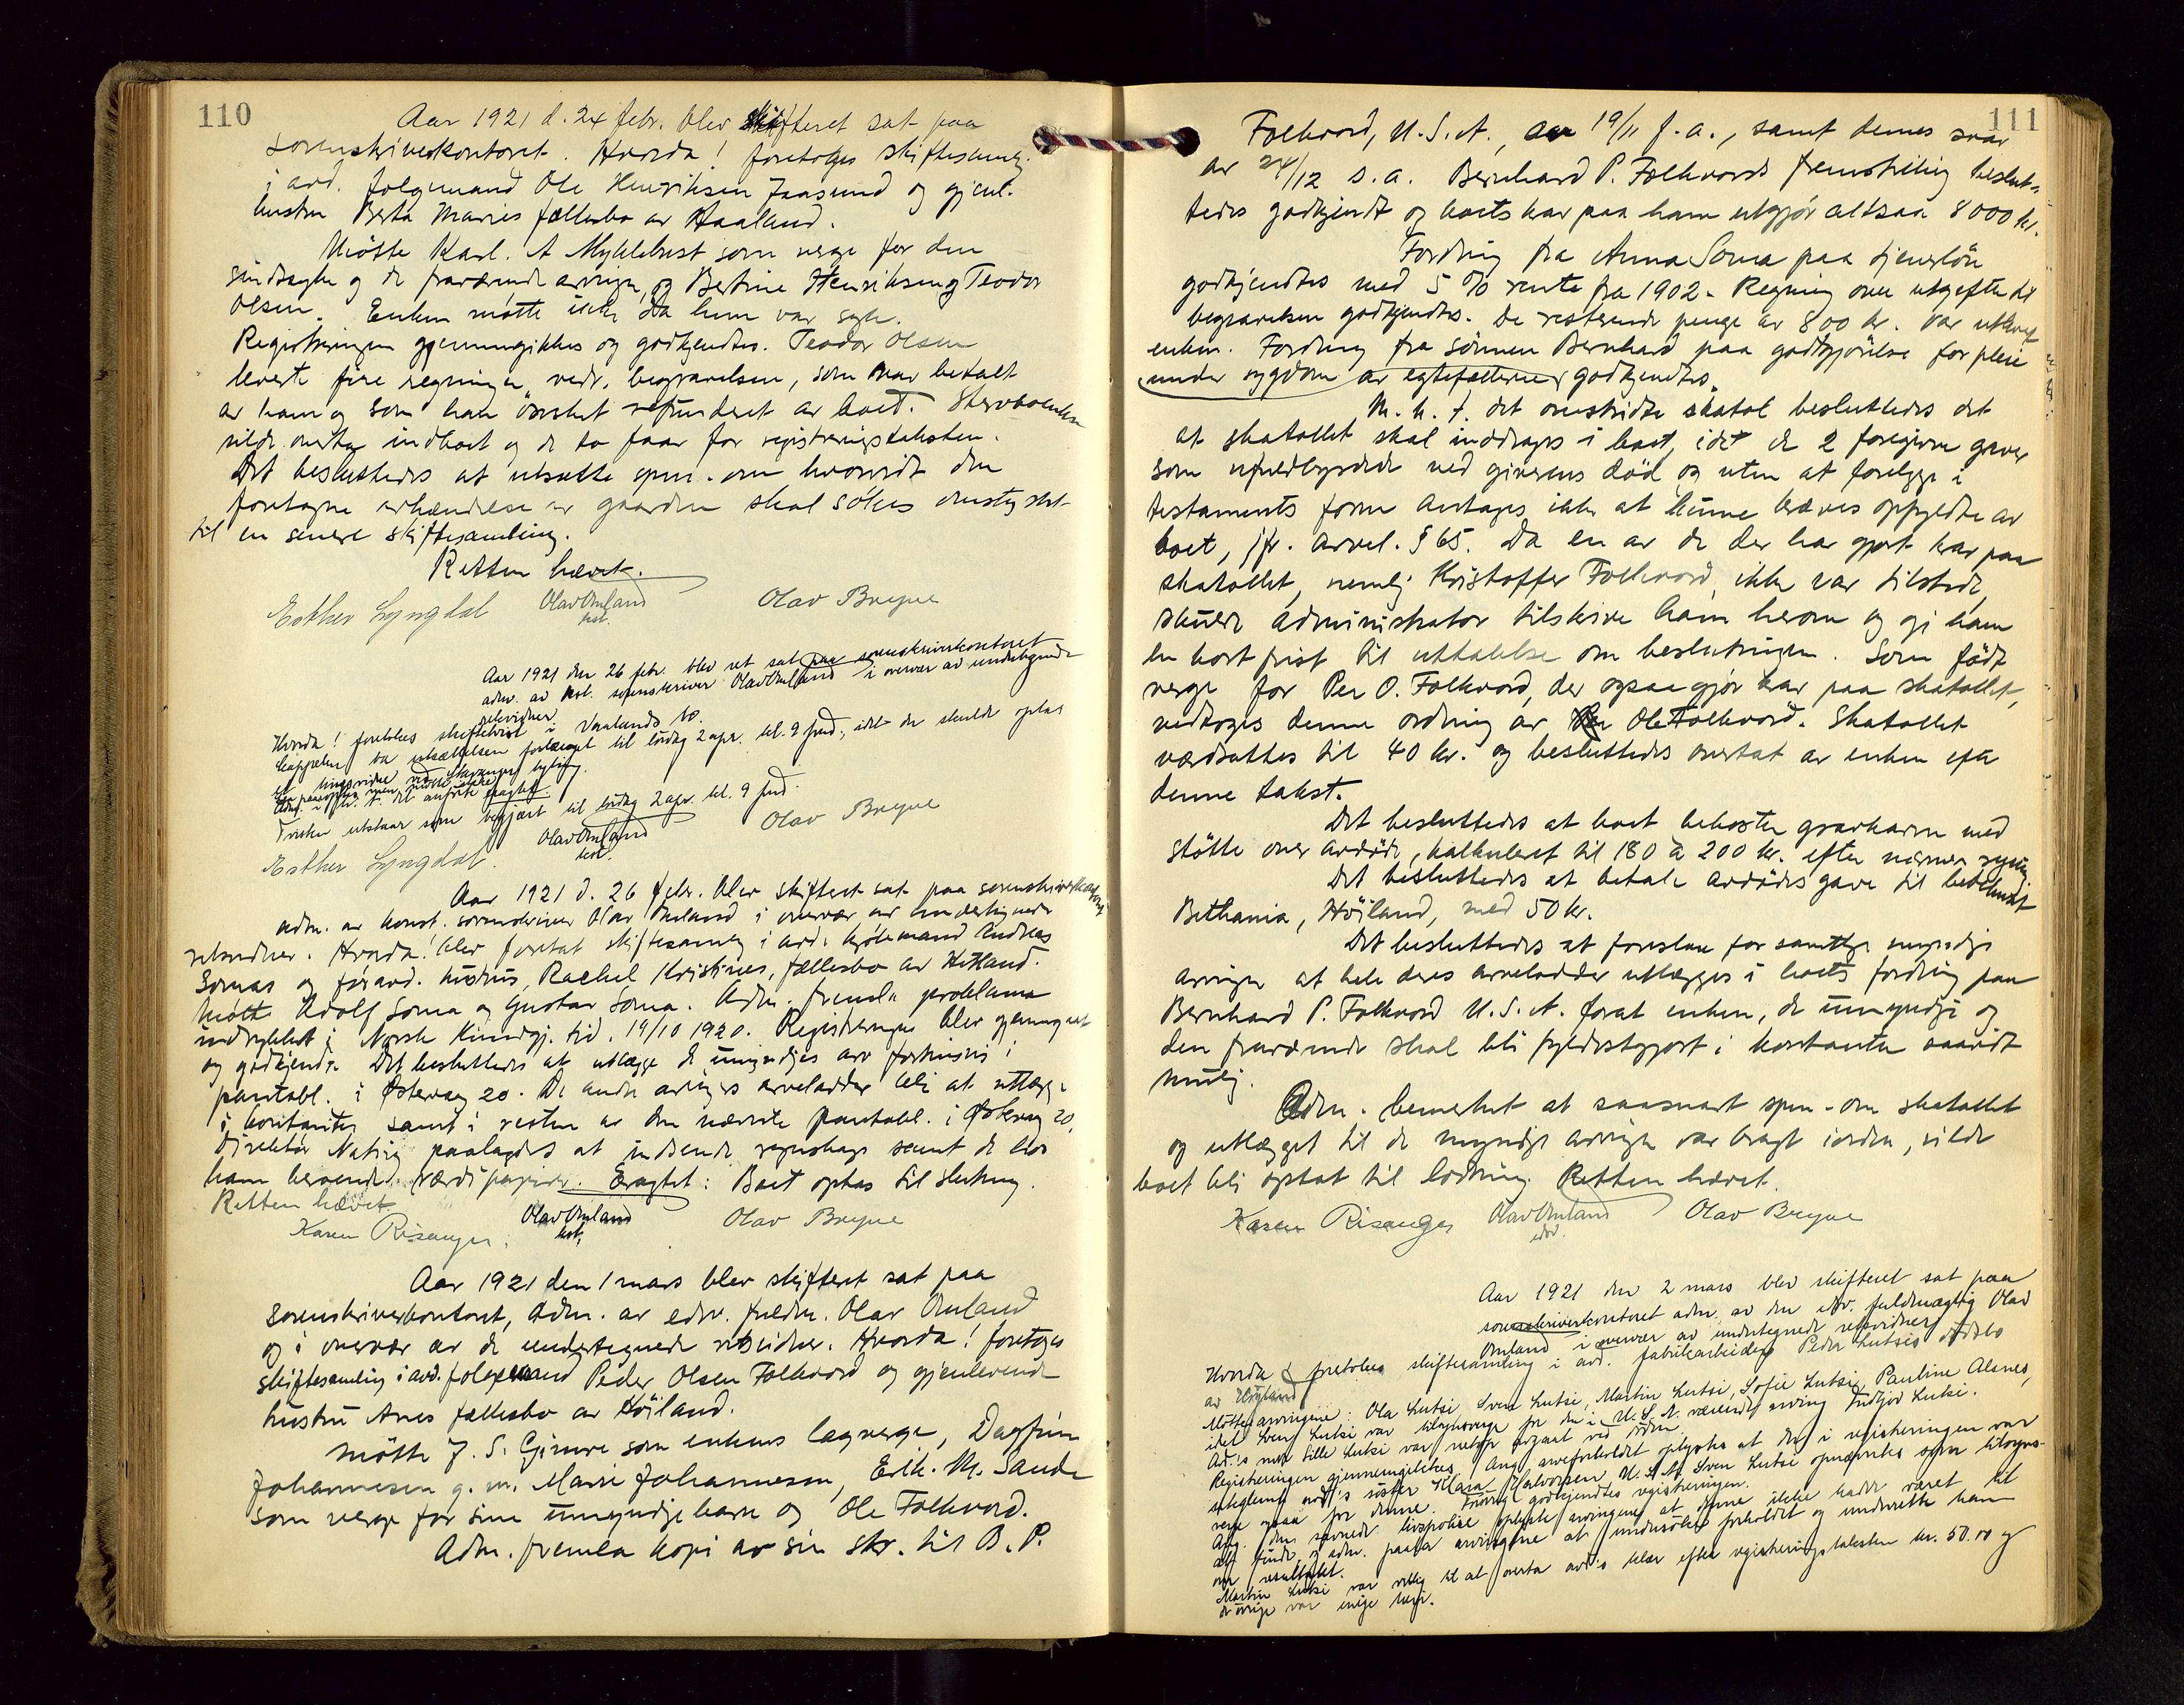 110
Aar 1921 d. 24 febr. blev skifteret sat paa
sorenskriverkontoret. Hvorda! foretoges skiftesamlg.
i avd. folgemand Ole Henriksen Jaasund og gjenl.
hustru Berta Maries fællesbo av Haaland.
Mötte Karl. A Myklebust som verge for den
sindssyke og de fraværende arvinger, og Bertine Henriksen og Teodor
Olsen. Enken møtte ikke da hun var syk.
Registreringen gjennemgikkes og godkjendtes. Teodor Olsen
leverte fire regninger, vedr. begravelsen, som var betalt
av ham og som han önsket refunderet av boet. Stervboenken
vilde overta indboet og de to faar for registreringstaksten.
Det besluttedes at utsætte spm. om hvorvidt den
foretagne avhændelse av gaarden skal sökes omstyrtet
til en senere skiftesamling.
Retten hævet.
Esther Lyngdal Olav Omland Olav Bryne
kst.
Aar 1921 den 26 febr. blev ret sat paa sorenskriverkontoret
adm. av kst. sorenskriver Olav Omland i overvær av undertegnede
retsvidner.
Hvorda! foretokes skifteretst i Vaalands bo.
begjæret utsættelsen forlænget til lördag 2 apr. kl. 9 fmd., idet der skulde optas
et tingsvidne ved Stavanger byting.
Fristen utstaar som begjært til lördag 2 apr. kl. 9 fmd.
Esther Lyngdal. Olav Omland Olav Bryne
kst.
Aar 1921 d. 26 febr. blev skifteret sat paa sorenskriverkontoret
adm. av konst. sorenskriver Olav Omland i overvær av undertegnede
retsvidner. Hvorda! blev foretat skiftesamlg i avd. kjöbmand Andreas
Somas og foravd. hustrus, Rachel Kristines, fællesbo av Hetland.
Mötte Adolf Soma og Gustav Soma. Adm. freml. proklama
indrykket i Norsk Kundgj. tid. 19/10 1920. Registreringen blev gjennemgaat
og godkjendt. Det besluttedes at utlægge de umyndiges arv fortrinsvis i
pantobl. i Østervåg 20. De andre arvingers arvelodder blir at utlægge
i kontanter samt i resten av den nævnte pantobl. i Østervåg 20.
Direktör Natvig paalagdes at indsende regnskap samt de hos
ham beroende værdipapirer. Eragtet: Boet optas til slutning.
Retten hævet
Karen Risanger. Olav Omland Olav Bryne
kst.
Aar 1921 den 1 mars blev skifteret sat paa
sorenskriverkontoret, adm. av edsv. fuldm. Olav Omland
og i overvær av de undertegnede retsvidner. Hvorda! foretoges
skiftesamling i avd. folgemand Peder Olsen Folkvord og gjenlevende
hustru Anes fællesbo av Höiland.
Mötte J. S. Gimre som enkens lagverge, Dagfinn
Johannesen g. m. Marie Johannesen, Erik. M. Sande
som verge for sine umyndige barn og Ole Folkvord.
Adm. fremla kopi av sin skr. til B. P.
111
Folkvord, U.S.A., av 19/11 f.a., samt dennes svar
av 24/12 s.a. Bernhard P. Folkvords fremstilling beslut-
tedes godkjendt og boets krav paa ham utgjör altsaa 8000 kr.
Fordring fra Anna Soma paa tjenerlön
godkjendtes med 5 % rente fra 1902. Regning over utgifter til
begravelsen godkjendtes. De resterende penge av 800 kr. var utlagt
enken. Fordring fra sönnen Bernhard paa godtgjörelse for pleie
under sygdom av egtefællerne godkjendtes.
M. h. t. det omstridte skatol besluttedes det
at skatollet skal inddrages i boet, idet de 2 foregivne gaver
som ufuldbyrdede ved giverens död og uten at foreligge i
testaments form antages ikke at kunne kræves opfyldte av
boet, jfr. arvel. § 65. Da en av de der har gjort krav paa
skatollet, nemlig Kristoffer Folkvord, ikke var tilstede,
skulde administrator tilskrive ham herom og gi ham
en kort frist til uttalelse om beslutningen. Som född
verge for Per O. Folkvord, der ogsaa gjör krav paa skatollet,
vedtoges denne ordning av Ole Folkvord. Skatollet
værdsattes til 40 kr. og besluttedes overtat av enken efter
denne takst.
Det besluttedes at boet bekoster gravkarm med
stötte over avdöde, kalkuleret til 180 à 200 kr. efter nærmere
Det besluttedes at betale avdödes gave til bedehuset
Bethania, Höiland, med 50 kr.
Det besluttedes at foreslaa for samtlige myndige
arvinger at hele deres arvelodder utlægges i boets fordring paa
Bernhard P. Folkvord U.S.A. forat enken, de umyndige og
den fraværende skal bli fyldestgjort i kontanter saavidt
mulig.
Adm. bemerket at saasnart spm. om skatollet
og utlægget til de myndige arvinger var bragt iorden, vilde
boet bli optat til lodning. Retten hævet.
Karen Risanger Olav Omland Olav Bryne
edsv.
Aar 1921 den 2 mars blev skifteret sat paa
sorenskriverkontoret adm. av den edsv. fuldmægtig Olav
Omland i overvær av undertegnede retsvidner.
Hvorda! foretokes skiftesamling i avd. fabrikarbeider Peder Lutsis dödsbo
av Höyland
Mötte arvingene: Ola Lutsi, Sven Lutsi, Martin Lutsi, Sofie Lutsi, Pauline Alsnes,
idet Sven Lutsi var tilsynsverge for den i U.S.A. værende arving Ingvor Lutsi.
Ad.'s mor Lille Lutsi var netop avgaat ved döden.
Registreringen gjennemgikkes. Ang. arveforholdet oplystes at den i registreringen var
uteglemt avd's söster Klara Halvorsen U.S.A. Sven Lutsi opnævntes som tilsyns-
verge ogsaa for denne. Forövrig godkjendtes registreringen.
Ang. den savnede livspolise oplyste arvingene at denne ikke hadde været til
at finde, og adm. paala arvingene at undersöke forholdet og underrette ham
om resultatet.
Martin Lutsi var villig til at overta avd's klær efter registreringstaksten kr. 50.00 og
de övrige var enige heri.